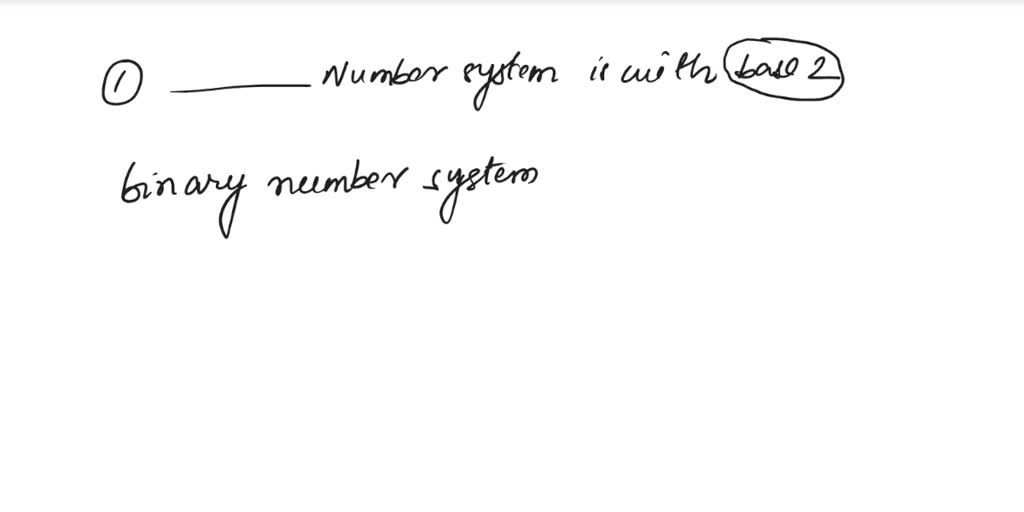 ① ______ Number system is with base 2
binary number system